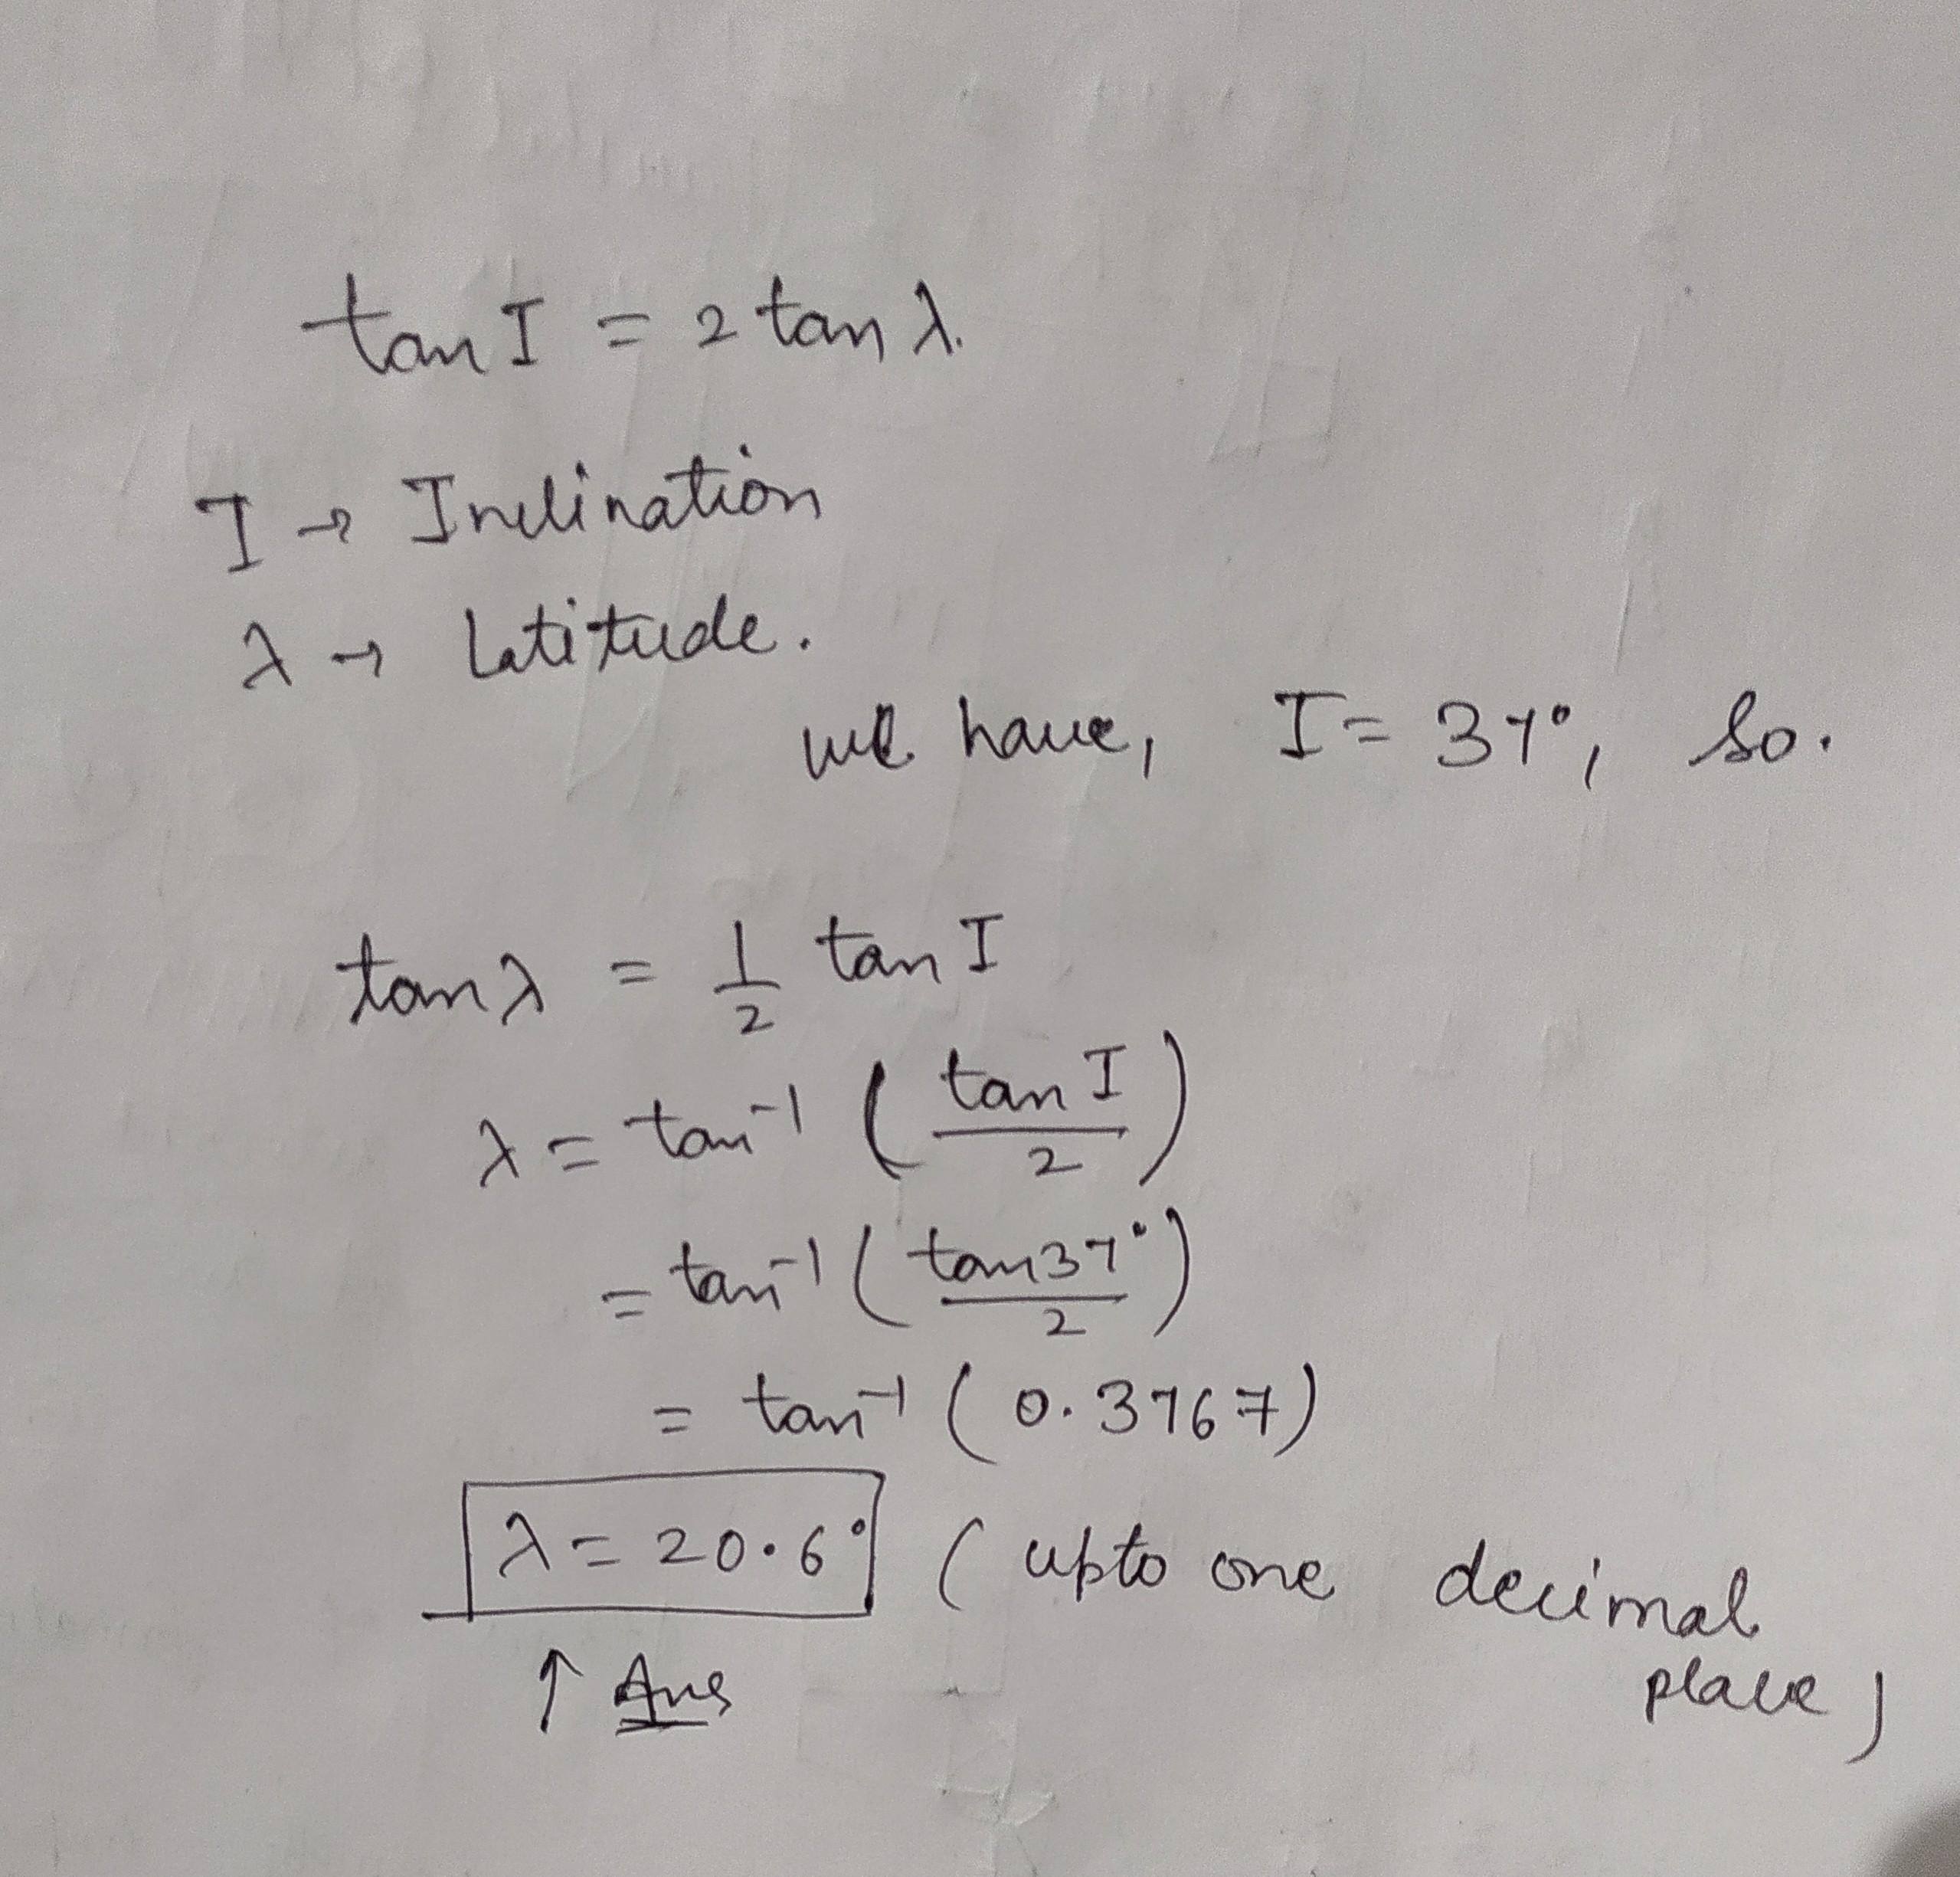 tan I = 2 tan λ.
I → Inclination
λ → Latitude.
we have, I = 37°, So.
tan λ = 1/2 tan I
λ = tan⁻¹ (tan I / 2)
= tan⁻¹ (tan 37° / 2)
= tan⁻¹ (0.3767)
λ = 20.6° (upto one decimal
place)
↑ Ans